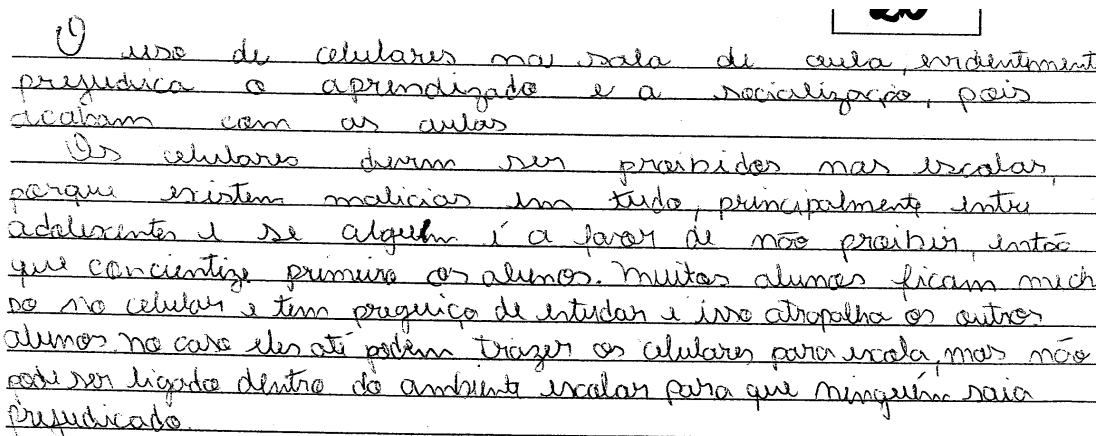 O uso de celulares na sala de aula, evidentement
prejudica o aprendizado e a socialização, pois
acabam com as aulas
Os celulares devem ser proibidos nas escolas,
porque existem malicias em tudo, principalmente entre
adolescentes e se alguém é a favor de não proibir, então
que concientize primeiro os alunos. Muitos alunos ficam mech
so no celular e tem preguiça de estudar e isso atrapalha os outros
alunos. no caso eles até podem trazer os celulares para escola, mas não
pode ser ligado dentro do ambiente escolar para que ninguém saia
prejudicado.